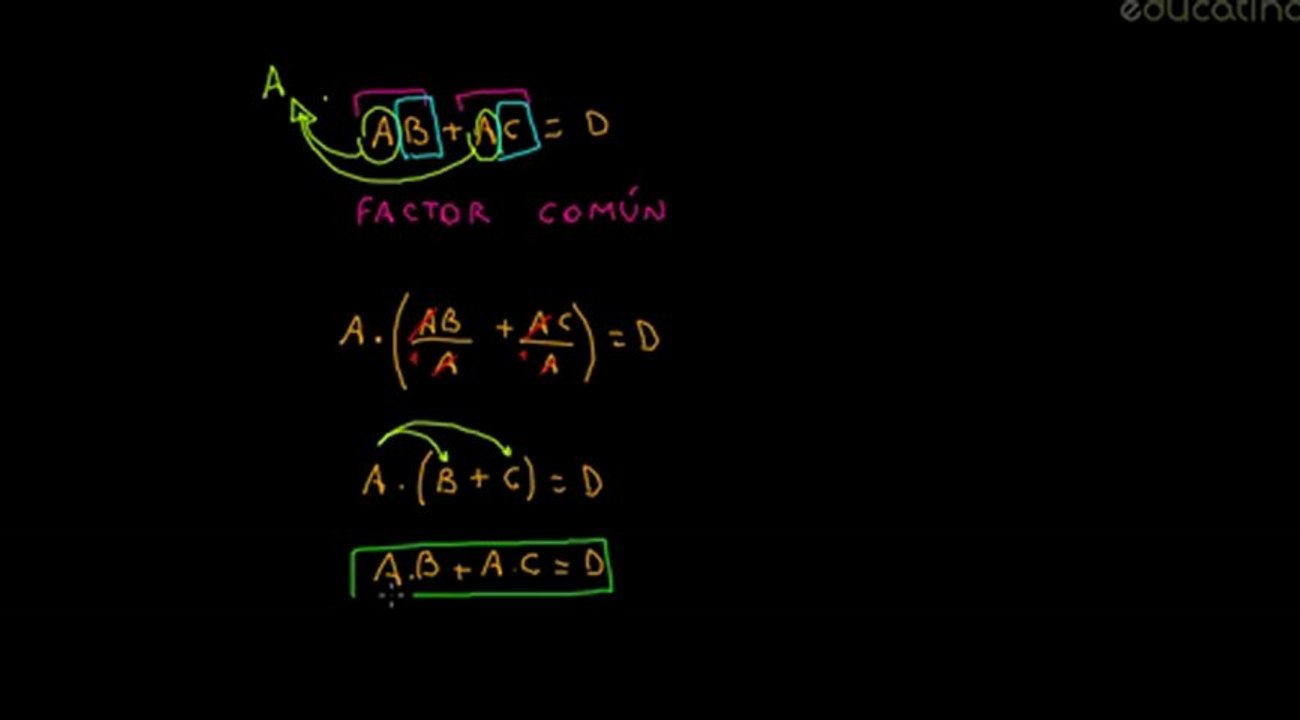 educatina
A . AB + AC = D
FACTOR COMÚN
A . (AB/A + AC/A) = D
A . (B + C) = D
A.B + A.C = D